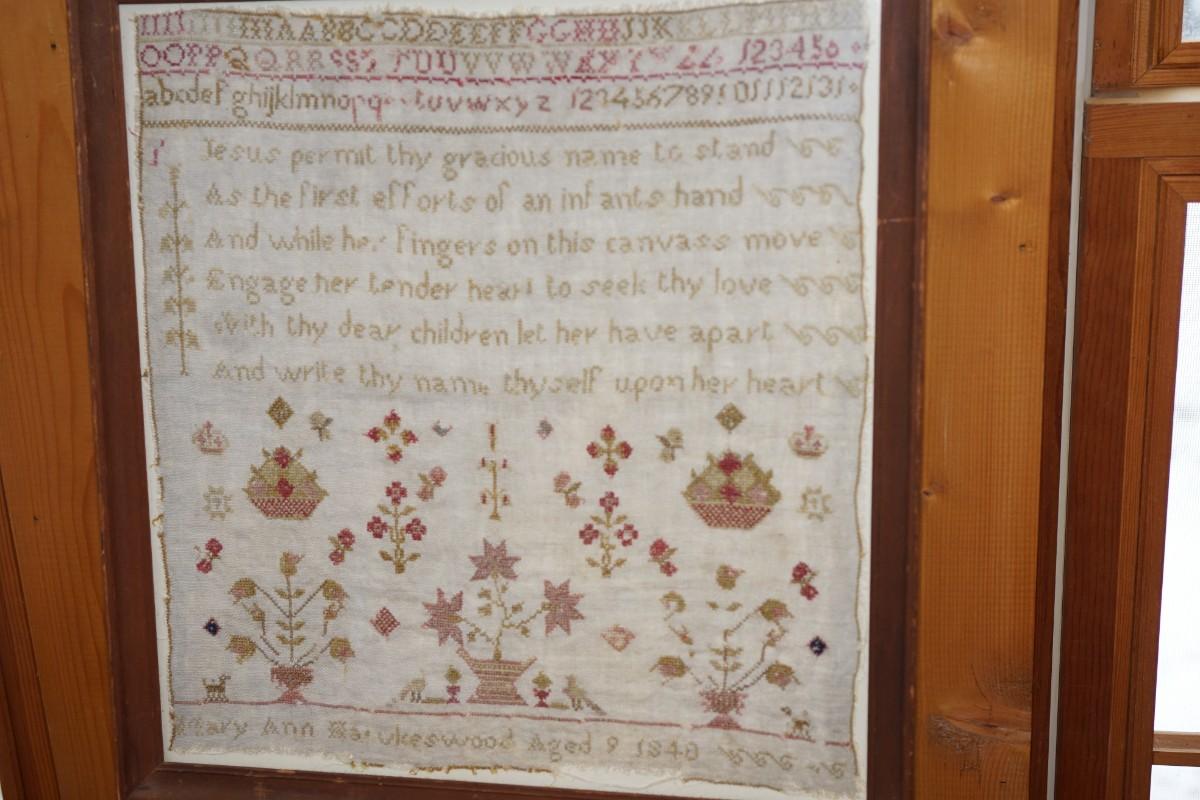 AABBCCDDEEFFGGHHJJK
OOPPQQRRSS TUUVVWW 123456
abcdefghijklmnopq tuvwxyz 12345678910111213
Jesus permit thy gracious name to stand
As the first efforts of an infants hand
And while her fingers on this canvass move
Engage her tender heart to seek thy love
With thy dear children let her have apart
And write thy name thyself upon her heart
Mary Ann Hawkeswood Aged 9 1840